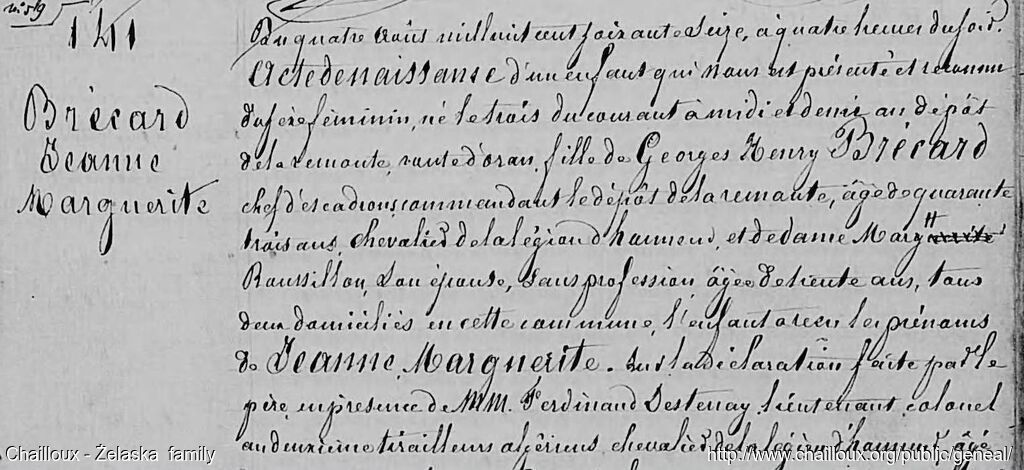 n° 59
141
Brécard
Jeanne
Marguerite
Du quatre Mars mil huit cent soixante Seize, à quatre heures du soir.
Acte de naissanse d'un enfant qui nous est présenté et reconnu
du sexe féminin, né le trois du courant à midi et demie au dépôt
de la remonte, route d'oran, fille de Georges Henry Brécard
chef d'escadrons, commandant le dépôt de la remonte, âgé de quarante
trois ans, chevalier de la légion d'honneur, et de dame Marg
Roussillon, son épouse, sans profession âgée de trente ans, tous
deux domiciliés en cette commune, l'enfant a reçu les prénoms
de Jeanne, Marguerite. Sur la déclaration faite par le
père, en présence de MM. Ferdinand Destenay, lieutenant colonel
au deuxième tirailleurs algériens, chevalier de la légion d'honneur, âgé
Chailloux - Żelaska family
http://www.chailloux.org/public/geneal/